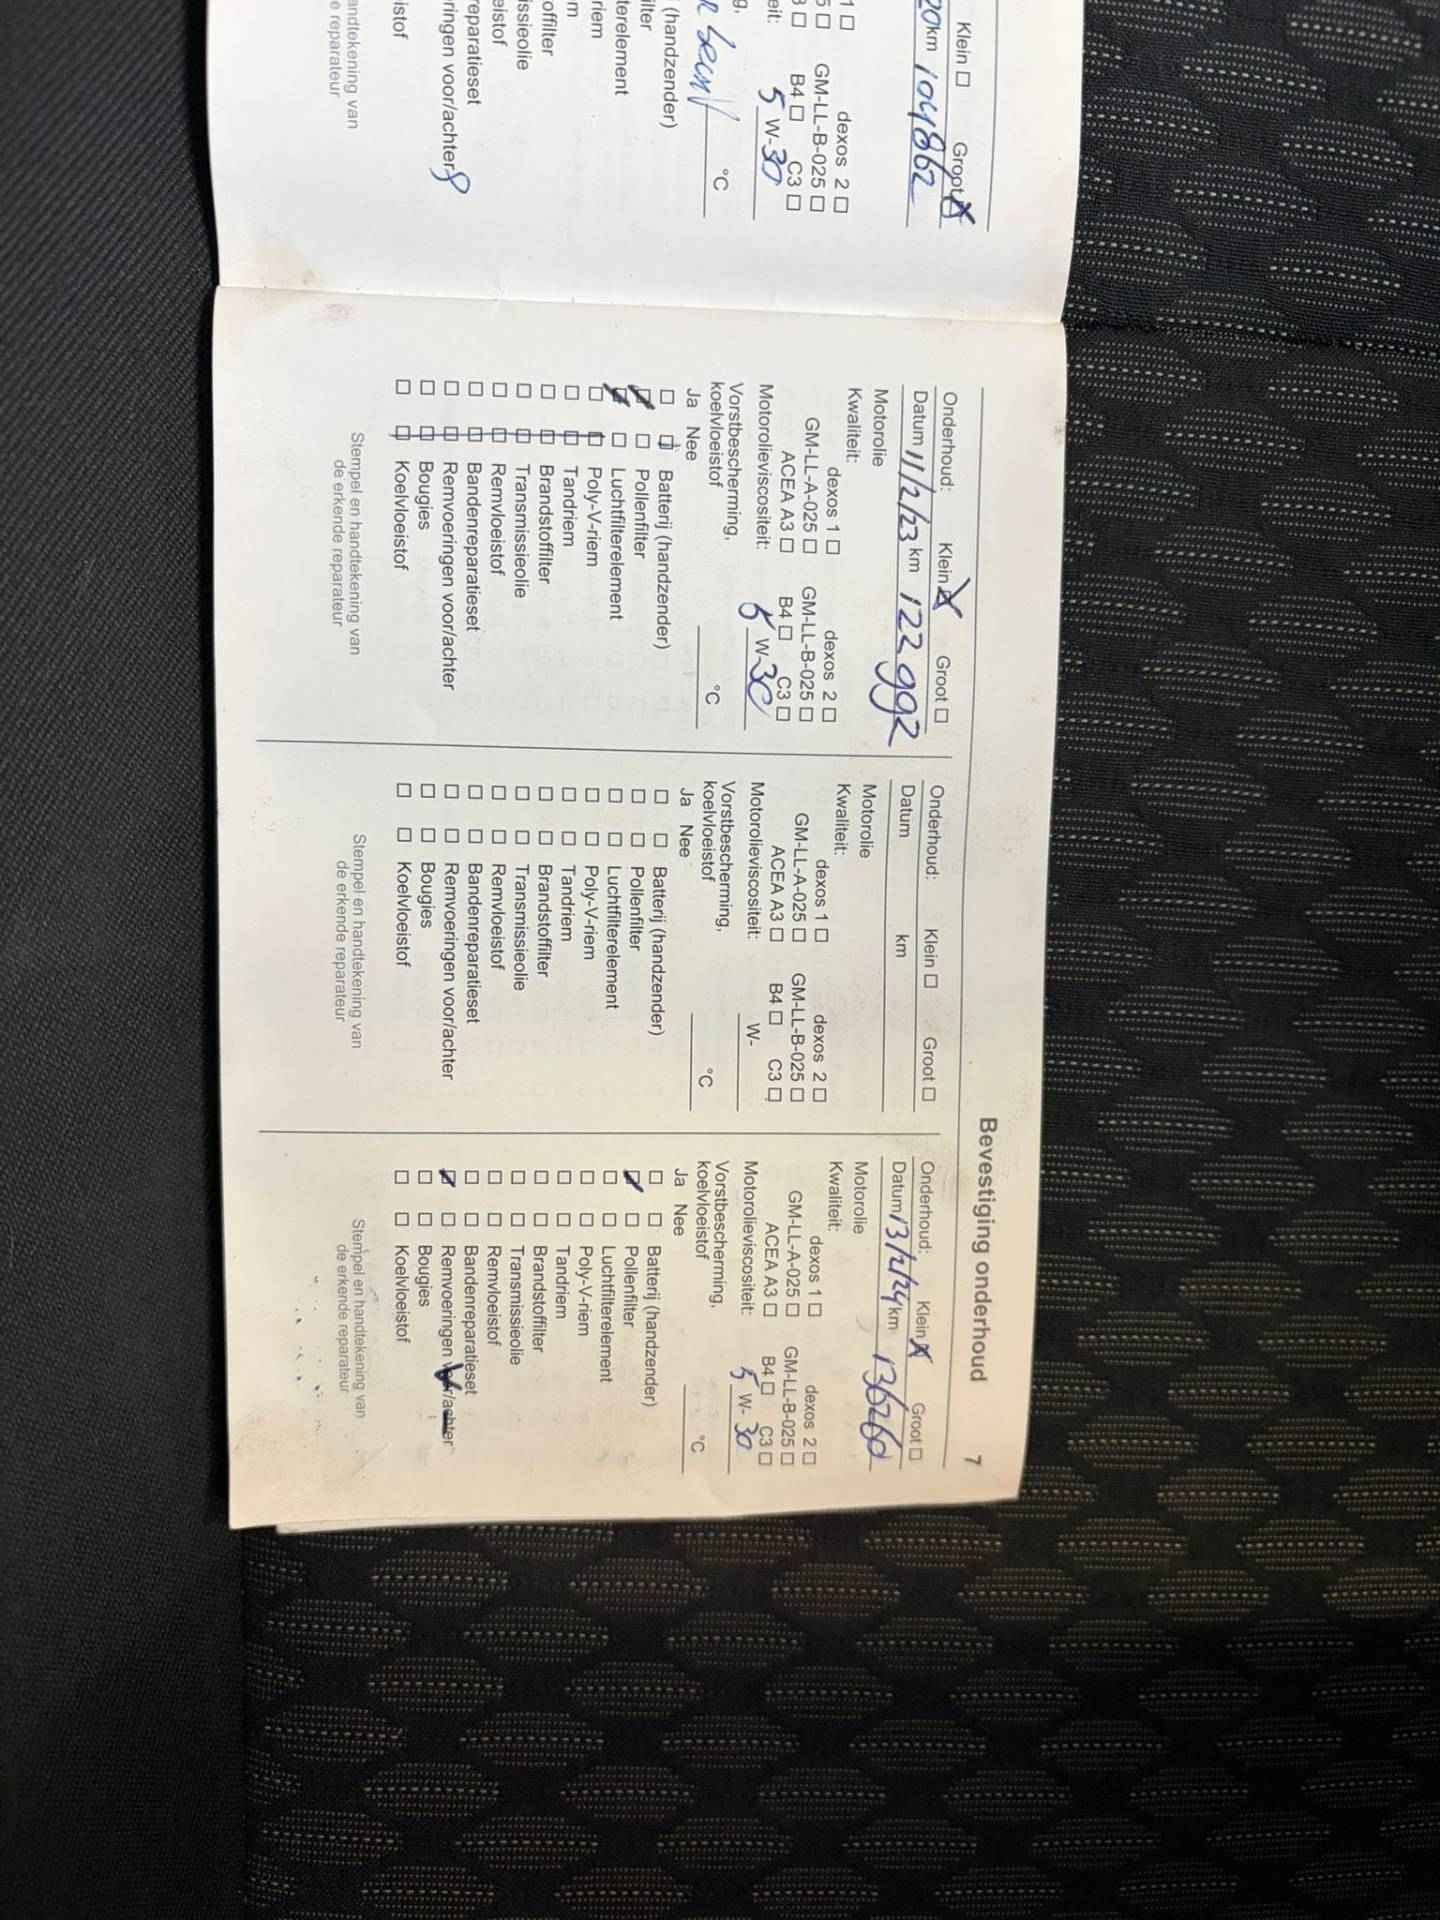 Klein ☐ Groot ☒
20 km 104862
1 ☐ dexos 2 ☐
5 ☐ GM-LL-B-025 ☐
3 ☐ B4 ☐ C3 ☐
eit: 5 W-30
g,
°C
(handzender)
ilter
terelement
riem
m
offilter
issieolie
eistof
reparatieset
ringen voor/achter
istof
andtekening van
e reparateur
Bevestiging onderhoud 7
Onderhoud: Klein ☒ Groot ☐
Datum 11/2/23 km 122992
Motorolie
Kwaliteit:
dexos 1 ☐ dexos 2 ☐
GM-LL-A-025 ☐ GM-LL-B-025 ☐
ACEA A3 ☐ B4 ☐ C3 ☐
Motorolieviscositeit: 5 W-30
Vorstbescherming,
koelvloeistof °C
Ja Nee
Batterij (handzender)
Pollenfilter
Luchtfilterelement
Poly-V-riem
Tandriem
Brandstoffilter
Transmissieolie
Remvloeistof
Bandenreparatieset
Remvoeringen voor/achter
Bougies
Koelvloeistof
Stempel en handtekening van
de erkende reparateur
Onderhoud: Klein ☐ Groot ☐
Datum km
Motorolie
Kwaliteit:
dexos 1 ☐ dexos 2 ☐
GM-LL-A-025 ☐ GM-LL-B-025 ☐
ACEA A3 ☐ B4 ☐ C3 ☐
Motorolieviscositeit: W-
Vorstbescherming,
koelvloeistof °C
Ja Nee
☐ ☐ Batterij (handzender)
☐ ☐ Pollenfilter
☐ ☐ Luchtfilterelement
☐ ☐ Poly-V-riem
☐ ☐ Tandriem
☐ ☐ Brandstoffilter
☐ ☐ Transmissieolie
☐ ☐ Remvloeistof
☐ ☐ Bandenreparatieset
☐ ☐ Remvoeringen voor/achter
☐ ☐ Bougies
☐ ☐ Koelvloeistof
Stempel en handtekening van
de erkende reparateur
Onderhoud: Klein ☒ Groot ☐
Datum 13/2/24 km
Motorolie
Kwaliteit:
dexos 1 ☐ dexos 2 ☐
GM-LL-A-025 ☐ GM-LL-B-025 ☐
ACEA A3 ☐ B4 ☐ C3 ☐
Motorolieviscositeit: 5 W-30
Vorstbescherming,
koelvloeistof °C
Ja Nee
☐ ☐ Batterij (handzender)
☑ ☐ Pollenfilter
☐ ☐ Luchtfilterelement
☐ ☐ Poly-V-riem
☐ ☐ Tandriem
☐ ☐ Brandstoffilter
☐ ☐ Transmissieolie
☐ ☐ Remvloeistof
☐ ☐ Bandenreparatieset
☑ ☐ Remvoeringen voor/achter
☐ ☐ Bougies
☐ ☐ Koelvloeistof
Stempel en handtekening van
de erkende reparateur